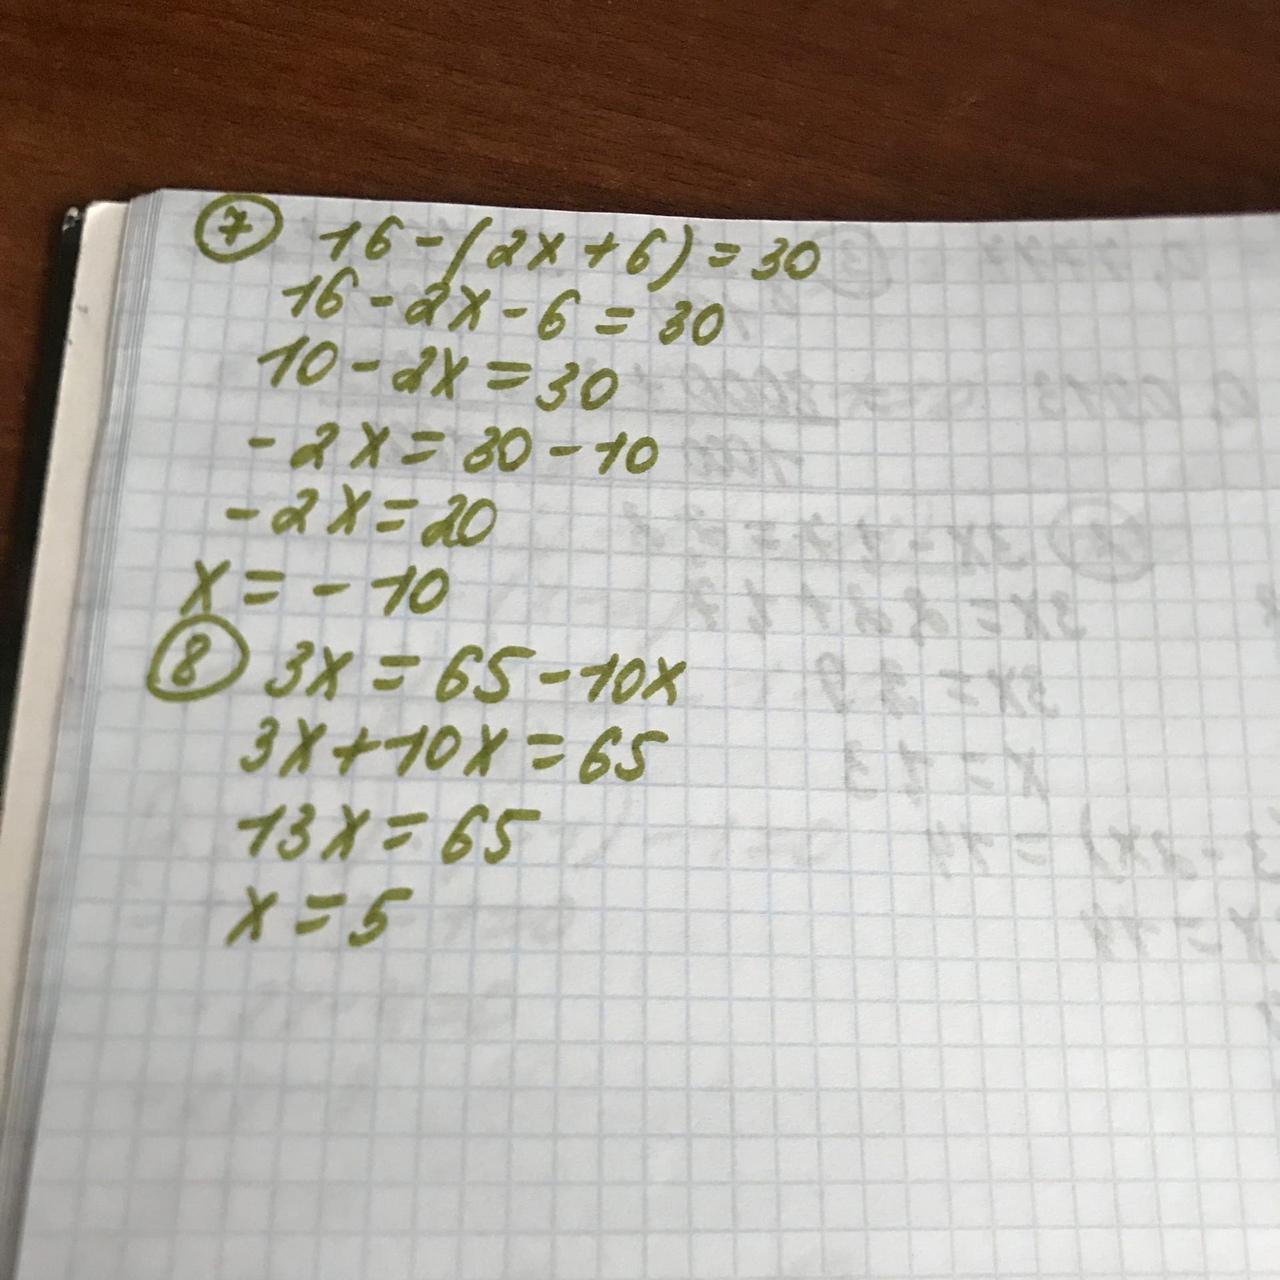 7 16-(2x+6)=30
16-2x-6=30
10-2x=30
-2x=30-10
-2x=20
x=-10
8 3x=65-10x
3x+10x=65
13x=65
x=5